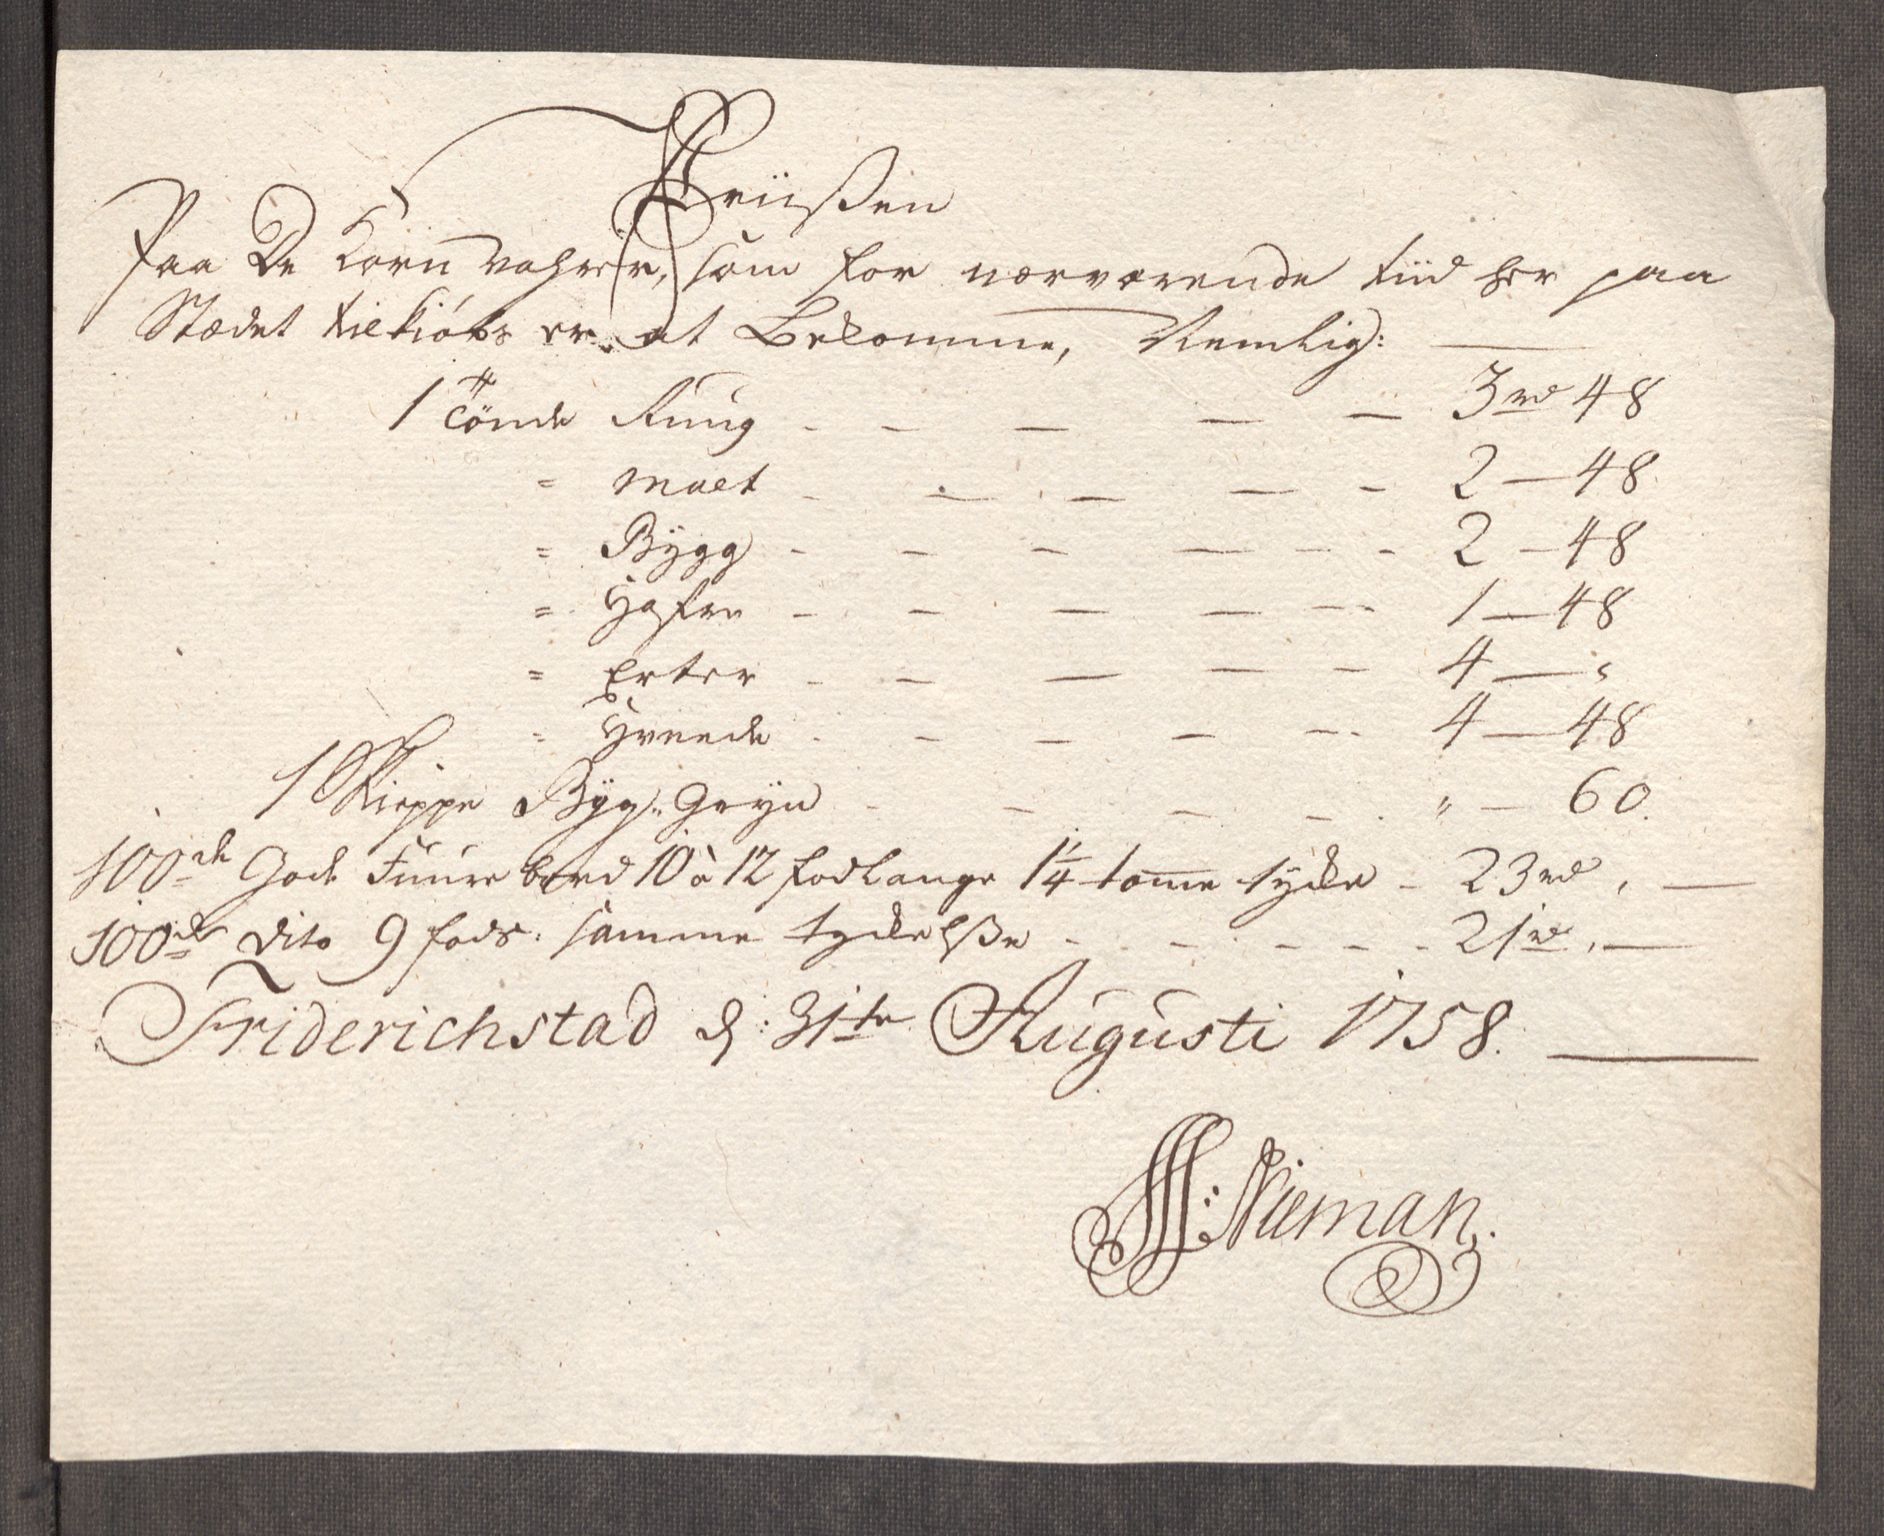 Priisen
Paa De Korn Vahrer, som for nærværende tiid her paa
Stædet til kiöbs er at Bekomme, Nemlig:
1 Tönde Rug - - - - - 3 rd 48
" Malt - - - - - 2 - 48
" Bÿgg - - - - - - 2 - 48
" Hafre - - - - - 1 - 48
" Erter - - - - - 4 - "
" Hveede - - - - - 4 - 48
1 Skieppe Bÿg: Grÿn - - - - " - 60.
100de Gode Fuure bord 10 à 12 fod lange 1 1/4 tomme tycke - 23 rd , -
100de dito 9 fods: samme tyckelsße - - - - - 21 rd , -
Friderichstad d: 31te Augusti 1758.
H: Nieman.